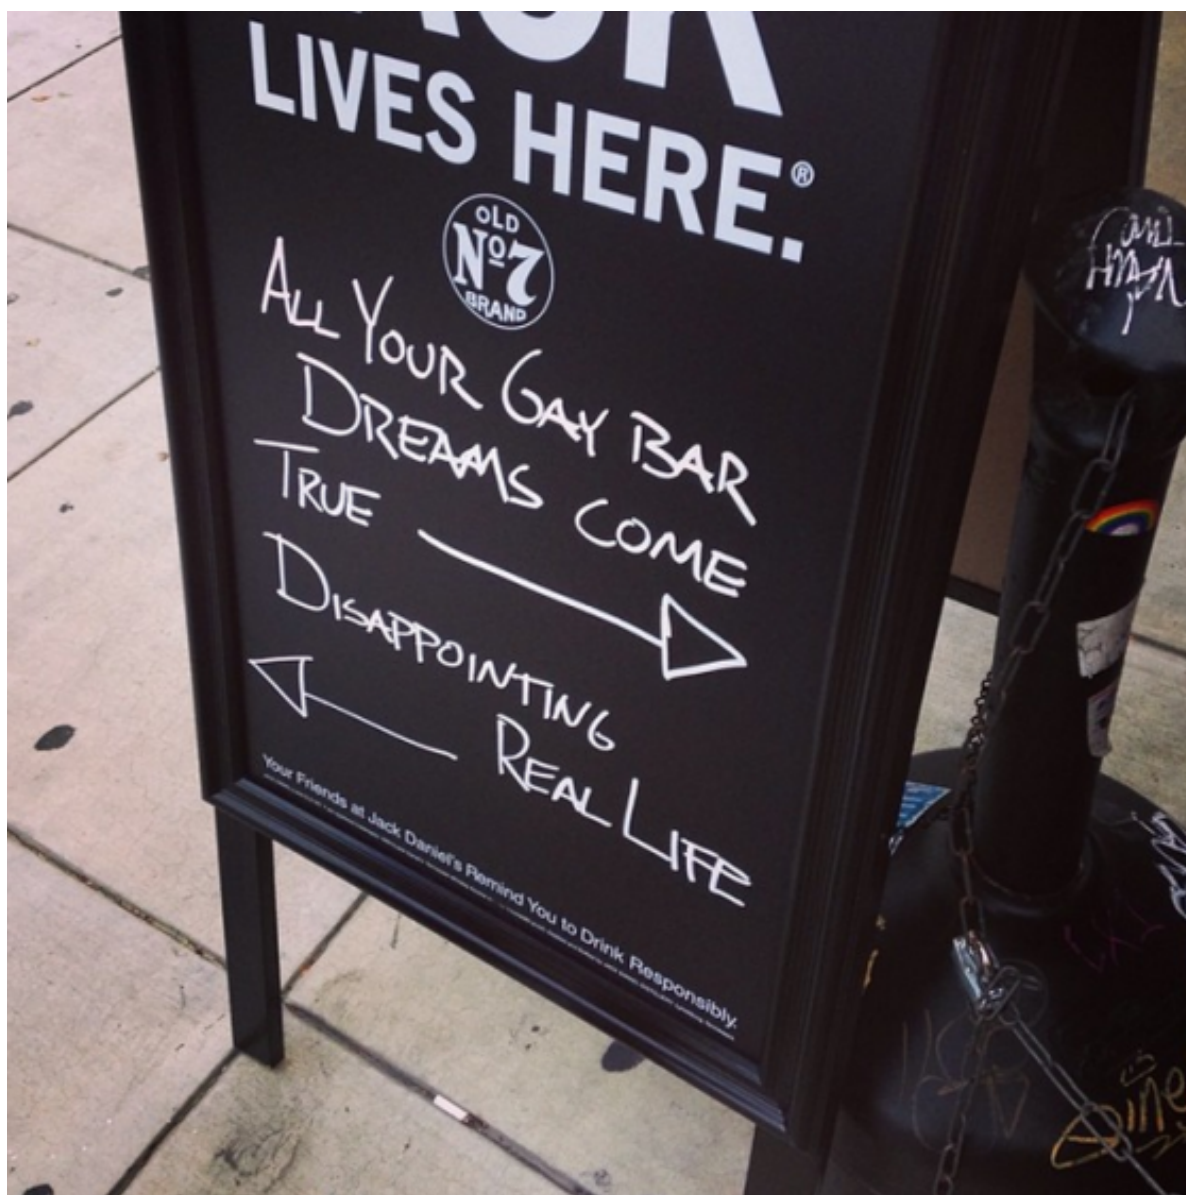 LIVES HERE.®
OLD
Nº7
BRAND
ALL YOUR GAY BAR
DREAMS COME
TRUE
DISAPPOINTING
REAL LIFE
Your Friends at Jack Daniel's Remind You to Drink Responsibly.